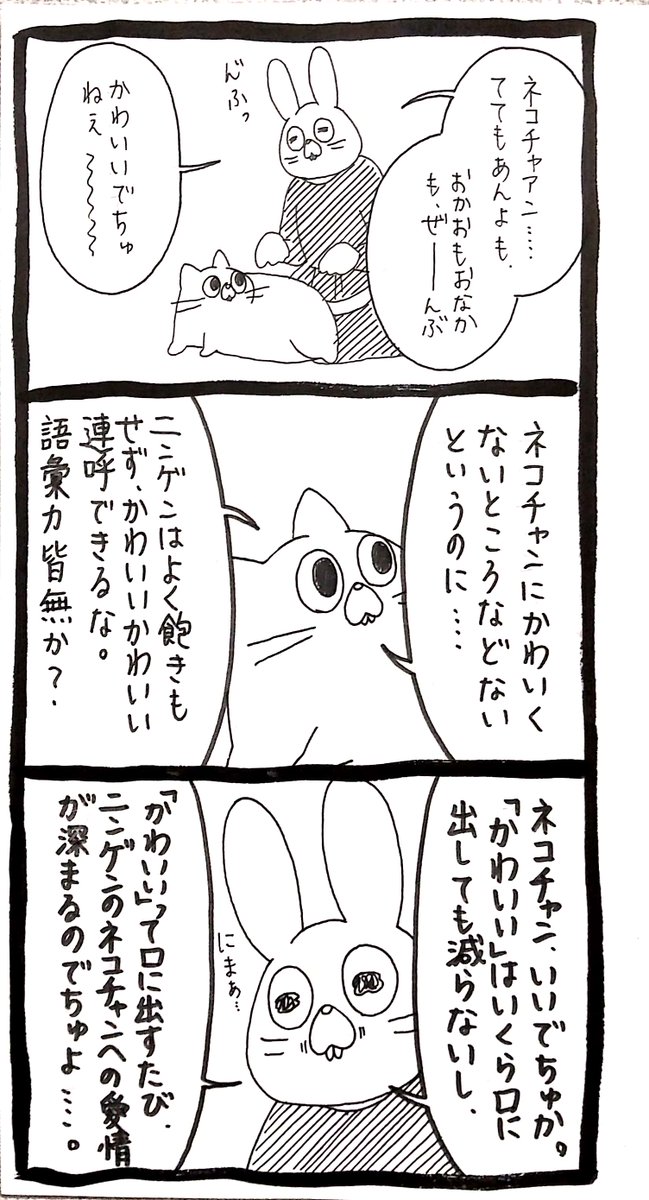 ネコチャアン……
ててもあんよも、
おかおもおなか
も、ぜーーんぶ
んふっ
かわいいでちゅ
ねぇ〜〜〜〜〜
ネコチャンにかわいく
ないところなどない
というのに……
ニンゲンはよく飽きも
せず、かわいいかわいい
連呼できるな。
語彙力皆無か?
ネコチャン、いいでちゅか。
「かわいい」はいくら口に
出しても減らないし、
にまぁ…
「かわいい」って口に出すたび、
ニンゲンのネコチャンへの愛情
が深まるのでちゅよ……。